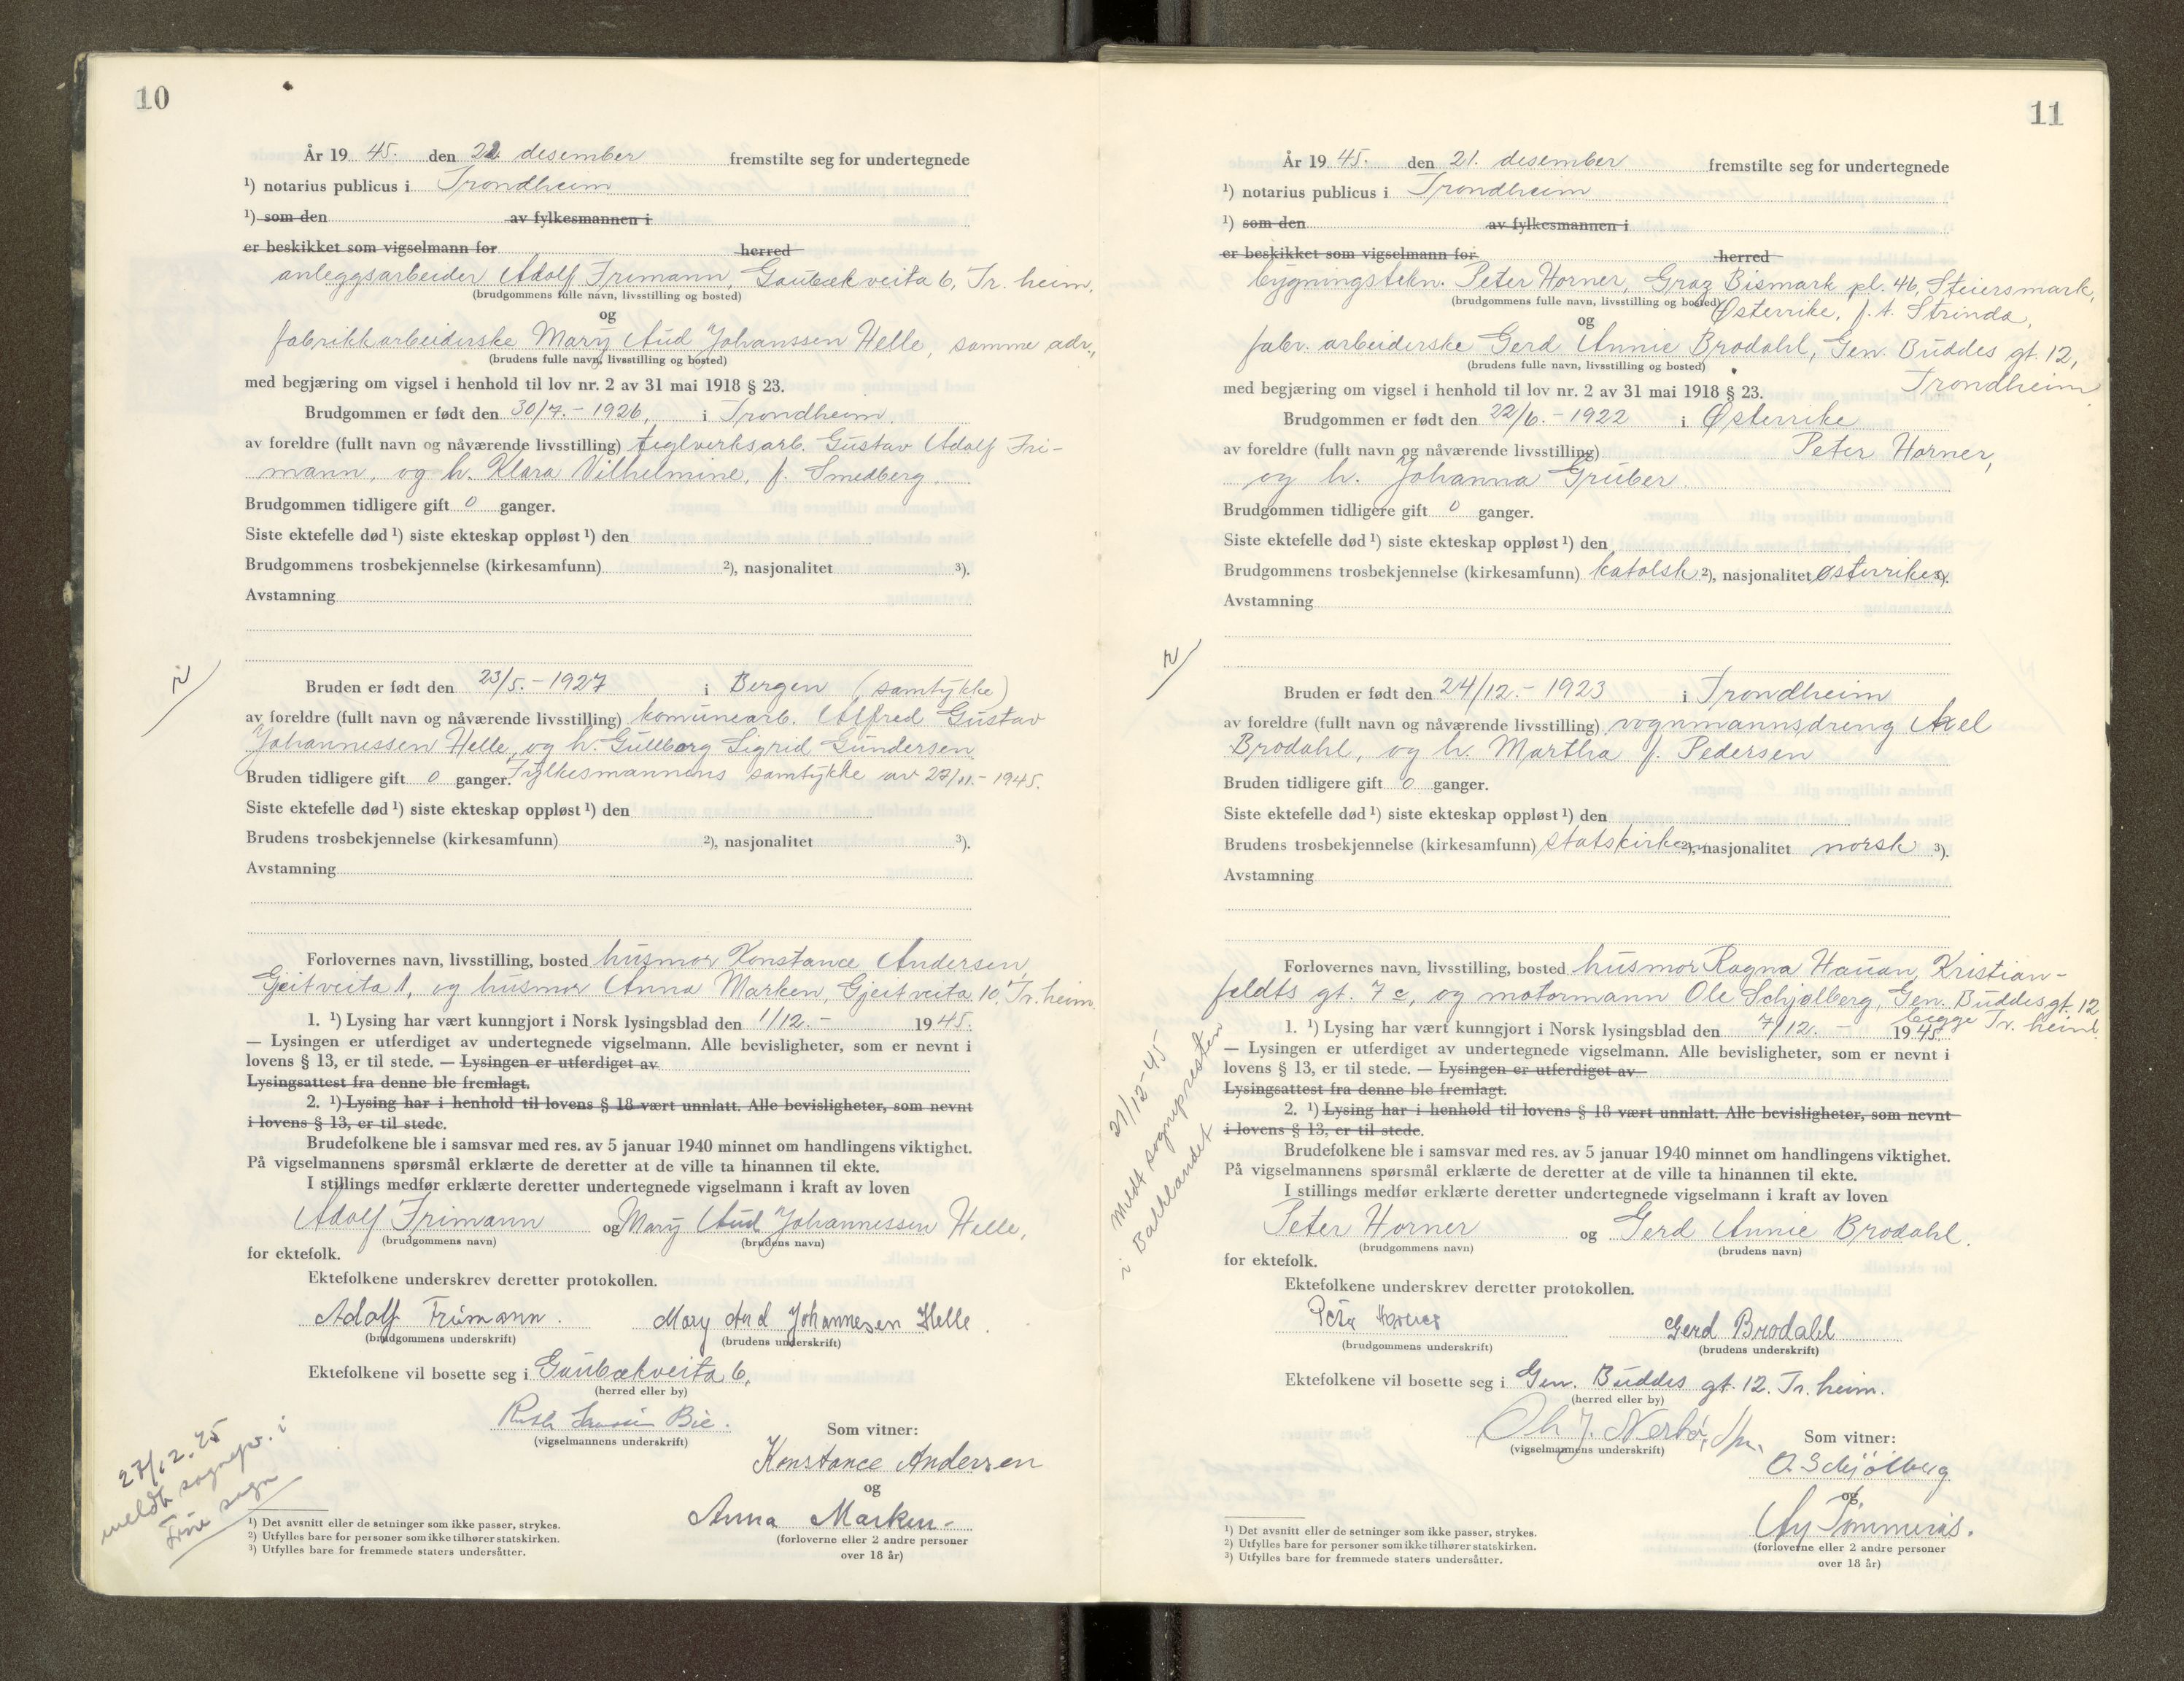 10
År 19 45. den 21 desember fremstilte seg for undertegnede
¹) notarius publicus i Trondheim
¹) som den av fylkesmannen i
er beskikket som vigselmann for herred
anleggsarbeider Adolf Frimann, Gaubækveita 6, Tr. heim.
(brudgommens fulle navn, livsstilling og bosted)
og
fabrikkarbeiderske Mary Aud Johanssen Helle, samme adr.,
(brudens fulle navn, livsstilling og bosted)
med begjæring om vigsel i henhold til lov nr. 2 av 31 mai 1918 § 23.
Brudgommen er født den 30/7. - 1926, i Trondheim.
av foreldre (fullt navn og nåværende livsstilling) teglverksarb. Gustav Adolf Fri-
mann, og h. Klara Vilhelmine, f. Smedberg.
Brudgommen tidligere gift 0 ganger.
Siste ektefelle død ¹) siste ekteskap oppløst ¹) den
Brudgommens trosbekjennelse (kirkesamfunn) ²), nasjonalitet ³).
Avstamning
Bruden er født den 23/5. - 1927 i Bergen (samtykke)
av foreldre (fullt navn og nåværende livsstilling) komunearb. Alfred Gustav
Johannessen Helle, og h. Gullborg Sigrid Gundersen
Bruden tidligere gift 0 ganger. Fylkesmannens samtykke av 27/11. - 1945.
Siste ektefelle død ¹) siste ekteskap oppløst ¹) den
Brudens trosbekjennelse (kirkesamfunn) ²), nasjonalitet ³).
Avstamning
Forlovernes navn, livsstilling, bosted husmor Konstance Andersen,
Gjeitveita 1, og husmor Anna Marken, Gjeitveita 10, Tr. heim.
1. ¹) Lysing har vært kunngjort i Norsk lysingsblad den 1/12. - 1945.
— Lysingen er utferdiget av undertegnede vigselmann. Alle bevisligheter, som er nevnt i
lovens § 13, er til stede. — Lysingen er utferdiget av
Lysingsattest fra denne ble fremlagt.
2. ¹) Lysing har i henhold til lovens § 18 vært unnlatt. Alle bevisligheter, som nevnt
i lovens § 13, er til stede.
Brudefolkene ble i samsvar med res. av 5 januar 1940 minnet om handlingens viktighet.
På vigselmannens spørsmål erklærte de deretter at de ville ta hinannen til ekte.
I stillings medfør erklærte deretter undertegnede vigselmann i kraft av loven
Adolf Frimann og Mary Aud Johannessen Helle,
(brudgommens navn) (brudens navn)
for ektefolk.
Ektefolkene underskrev deretter protokollen.
Adolf Frimann. Mary Aud Johannesen Helle.
(brudgommens underskrift) (brudens underskrift)
Ektefolkene vil bosette seg i Gaubækveita 6,
(herred eller by)
Ruth Bie.
(vigselmannens underskrift)
Som vitner:
Konstance Andersen
og
Anna Marken-
(forloverne eller 2 andre personer
over 18 år)
27/12.45
meldt sognepr. i
sogn
¹) Det avsnitt eller de setninger som ikke passer, strykes.
²) Utfylles bare for personer som ikke tilhører statskirken.
³) Utfylles bare for fremmede staters undersåtter.
11
År 19 45. den 21. desember fremstilte seg for undertegnede
¹) notarius publicus i Trondheim
¹) som den av fylkesmannen i
er beskikket som vigselmann for herred
bygningstekn. Peter Horner, Graz Bismark pl. 46, Steiersmark,
(brudgommens fulle navn, livsstilling og bosted)
Østerrike, f. t. Strinda,
og
fabr. arbeiderske Gerd Annie Brodahl, Gen. Buddes gt. 12,
(brudens fulle navn, livsstilling og bosted)
Trondheim
med begjæring om vigsel i henhold til lov nr. 2 av 31 mai 1918 § 23.
Brudgommen er født den 22/6. - 1922 i Østerrike
av foreldre (fullt navn og nåværende livsstilling) Peter Horner,
og h. Johanna Gruber.
Brudgommen tidligere gift 0 ganger.
Siste ektefelle død ¹) siste ekteskap oppløst ¹) den
Brudgommens trosbekjennelse (kirkesamfunn) katolsk ²), nasjonalitet østerriker ³).
Avstamning
Bruden er født den 24/12. - 1923 i Trondheim
av foreldre (fullt navn og nåværende livsstilling) vognmannsdreng Axel
Brodahl, og h. Martha f. Pedersen
Bruden tidligere gift 0 ganger.
Siste ektefelle død ¹) siste ekteskap oppløst ¹) den
Brudens trosbekjennelse (kirkesamfunn) statskirken ²), nasjonalitet norsk ³).
Avstamning
Forlovernes navn, livsstilling, bosted husmor Ragna Hauan, Kristian-
feldts gt. 7 c, og motormann Ole Schjølberg, Gen. Buddes gt. 12
begge Tr. heim.
1. ¹) Lysing har vært kunngjort i Norsk lysingsblad den 7/12. - 1945.
— Lysingen er utferdiget av undertegnede vigselmann. Alle bevisligheter, som er nevnt i
lovens § 13, er til stede. — Lysingen er utferdiget av
Lysingsattest fra denne ble fremlagt.
2. ¹) Lysing har i henhold til lovens § 18 vært unnlatt. Alle bevisligheter, som nevnt
i lovens § 13, er til stede.
Brudefolkene ble i samsvar med res. av 5 januar 1940 minnet om handlingens viktighet.
På vigselmannens spørsmål erklærte de deretter at de ville ta hinannen til ekte.
I stillings medfør erklærte deretter undertegnede vigselmann i kraft av loven
Peter Horner og Gerd Annie Brodahl.
(brudgommens navn) (brudens navn)
for ektefolk.
Ektefolkene underskrev deretter protokollen.
Peter Horner Gerd Brodahl
(brudgommens underskrift) (brudens underskrift)
Ektefolkene vil bosette seg i Gen. Buddes gt. 12. Tr. heim.
(herred eller by)
(vigselmannens underskrift)
Som vitner:
O. Schjölberg
og
Tömmerås.
(forloverne eller 2 andre personer
over 18 år)
21/12-45
Meldt sognepresten
i Bakklandet
¹) Det avsnitt eller de setninger som ikke passer, strykes.
²) Utfylles bare for personer som ikke tilhører statskirken.
³) Utfylles bare for fremmede staters undersåtter.